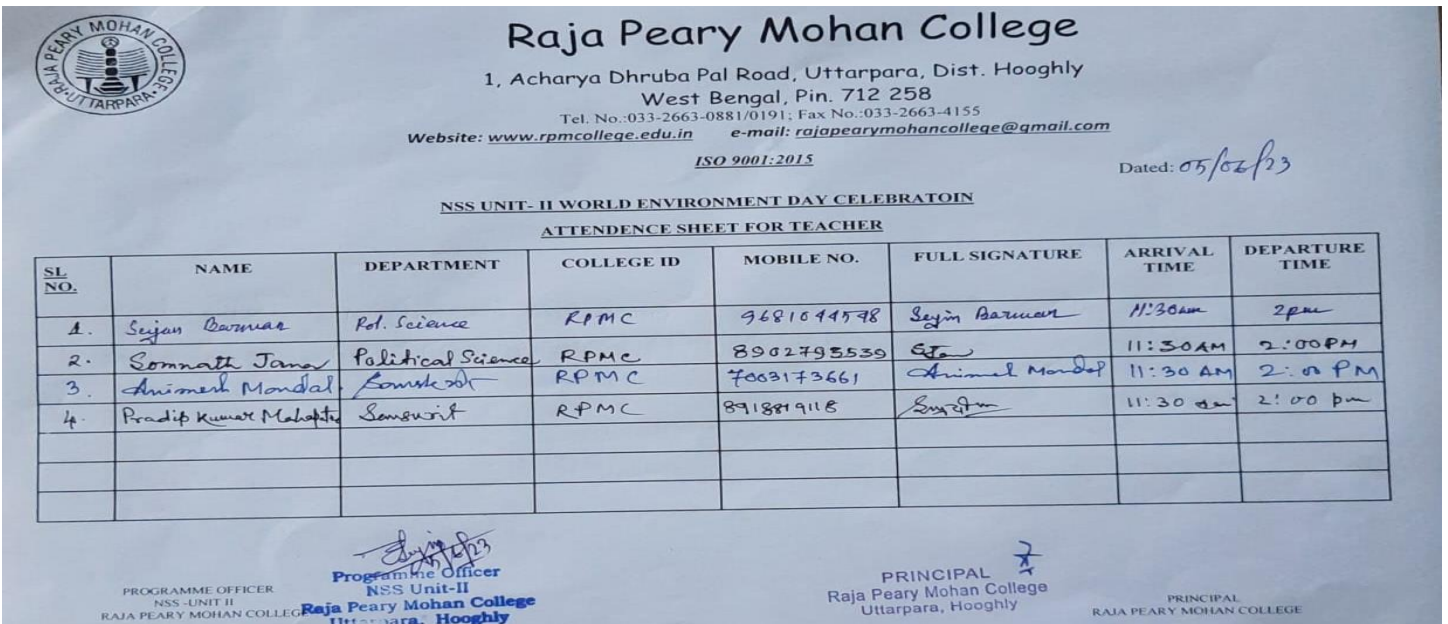 RAJA PEARY MOHAN COLLEGE
UTTARPARA
Raja Peary Mohan College
1, Acharya Dhruba Pal Road, Uttarpara, Dist. Hooghly
West Bengal, Pin. 712 258
Tel. No.:033-2663-0881/0191; Fax No.:033-2663-4155
Website: www.rpmcollege.edu.in e-mail: rajapearymohancollege@gmail.com
ISO 9001:2015
Dated: 05/06/23
NSS UNIT- II WORLD ENVIRONMENT DAY CELEBRATOIN
ATTENDENCE SHEET FOR TEACHER
SL NO. NAME DEPARTMENT COLLEGE ID MOBILE NO. FULL SIGNATURE ARRIVAL TIME DEPARTURE TIME
1. Barman Pol. Science RPMC Barman 11:30am 2pm
2. Somnath Jana Political Science RPMC 8902793539 11:30AM 2:00PM
3. Animesh Mondal RPMC 7003173661 Mondal 11:30 AM 2:00 PM
4. Pradip Kumar RPMC 11:30 2:00 pm
Programme Officer
NSS Unit-II
Raja Peary Mohan College
Uttarpara, Hooghly
PROGRAMME OFFICER
NSS -UNIT II
RAJA PEARY MOHAN COLLEGE
PRINCIPAL
Raja Peary Mohan College
Uttarpara, Hooghly
PRINCIPAL
RAJA PEARY MOHAN COLLEGE